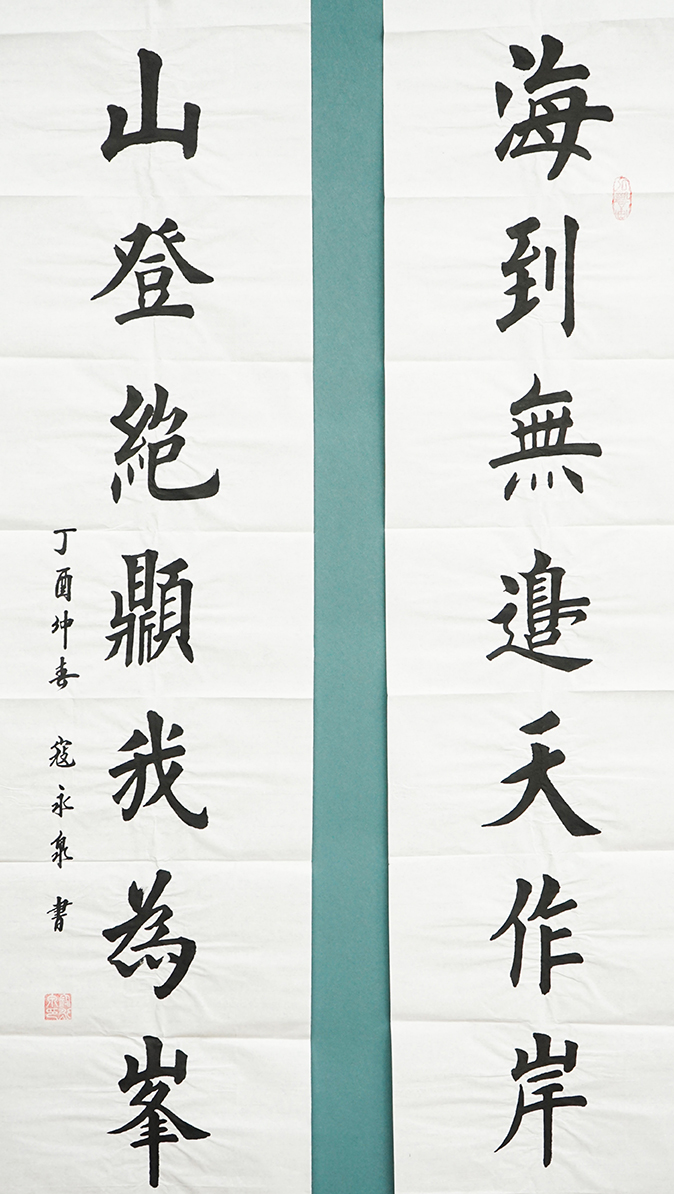 海到無邊天作岸
山登絕顛我為峯
丁酉仲春 寇永泉 書